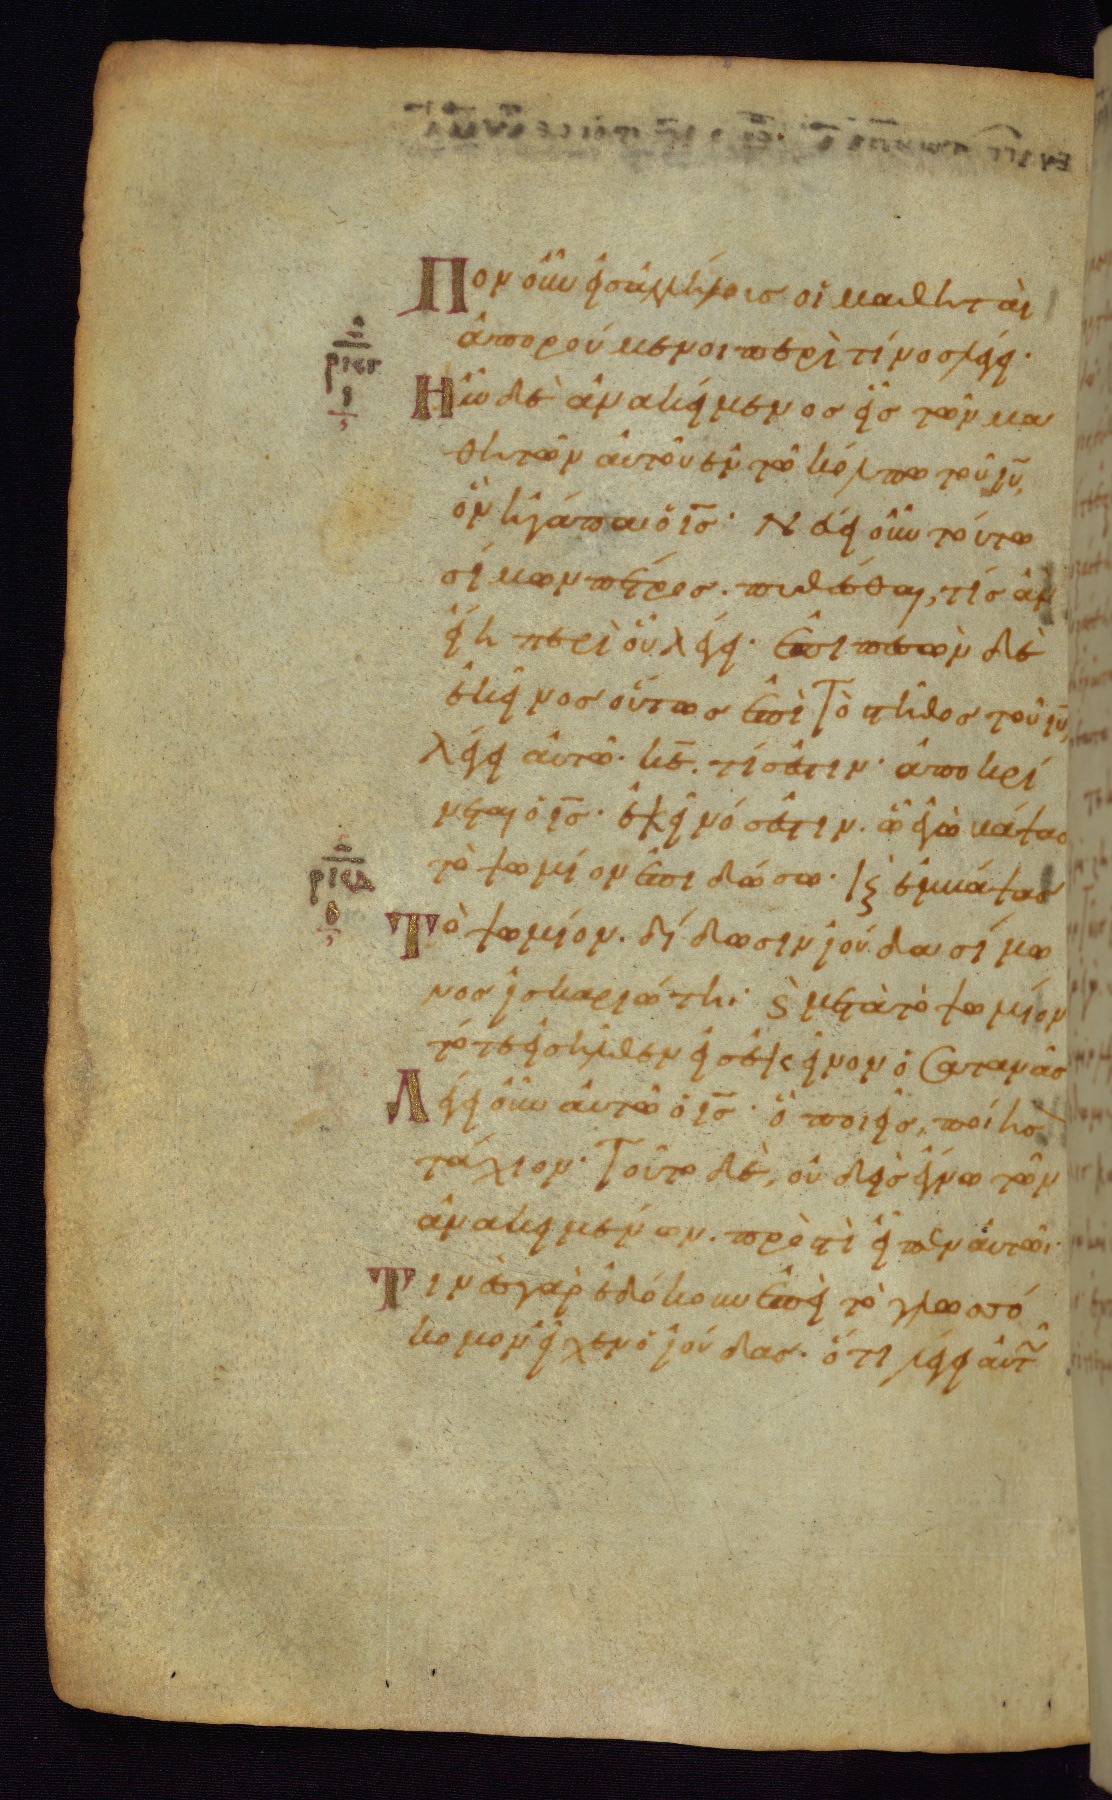 Πον οὖν εἰς ἀλλήλους οἱ μαθηταὶ
ἀπορούμενοι περὶ τίνος λέγει·
Ην δὲ ἀνακείμενος εἷς τῶν μα
θητῶν αὐτοῦ ἐν τῶ κόλπω τοῦ ἰῦ,
ὃν ἠγάπα ὁ ις̅· Νεύει οὖν τούτω
σίμων πέτρος. πυθέσθαι, τίς ἂν
εἴη περὶ οὗ λέγει· ἐπιπεσὼν δὲ
ἐκεῖνος οὕτως ἐπὶ τὸ στῆθος τοῦ ἰῦ,
λέγει αὐτῶ· κε̅. τίς ἐστιν· ἀποκρί
νεται ὁ ις̅· ἐκεῖνός ἐστιν. ὧ ἐγὼ βάψας
τὸ ψωμίον ἐπιδώσω· καὶ ἐμβάψας
Τὸ ψωμίον. δίδωσιν ἰούδα σίμω
νος ἰσκαριώτη· καὶ μετὰ τὸ ψωμίον
τότε εἰσῆλθεν εἰς ἐκεῖνον ὁ σατανᾶς
Λέγει οὖν αὐτῶ ὁ ις̅· ὃ ποιεῖς, ποίησον
τάχιον· Τοῦτο δὲ, οὐδεὶς ἔγνω τῶν
ἀνακειμένων. πρὸς τί εἶπεν αὐτῶ·
Τινὲς γὰρ ἐδόκουν ἐπεὶ τὸ γλωσσό
κομον εἶχεν ὁ ἰούδας· ὅτι λέγει αὐτῶ